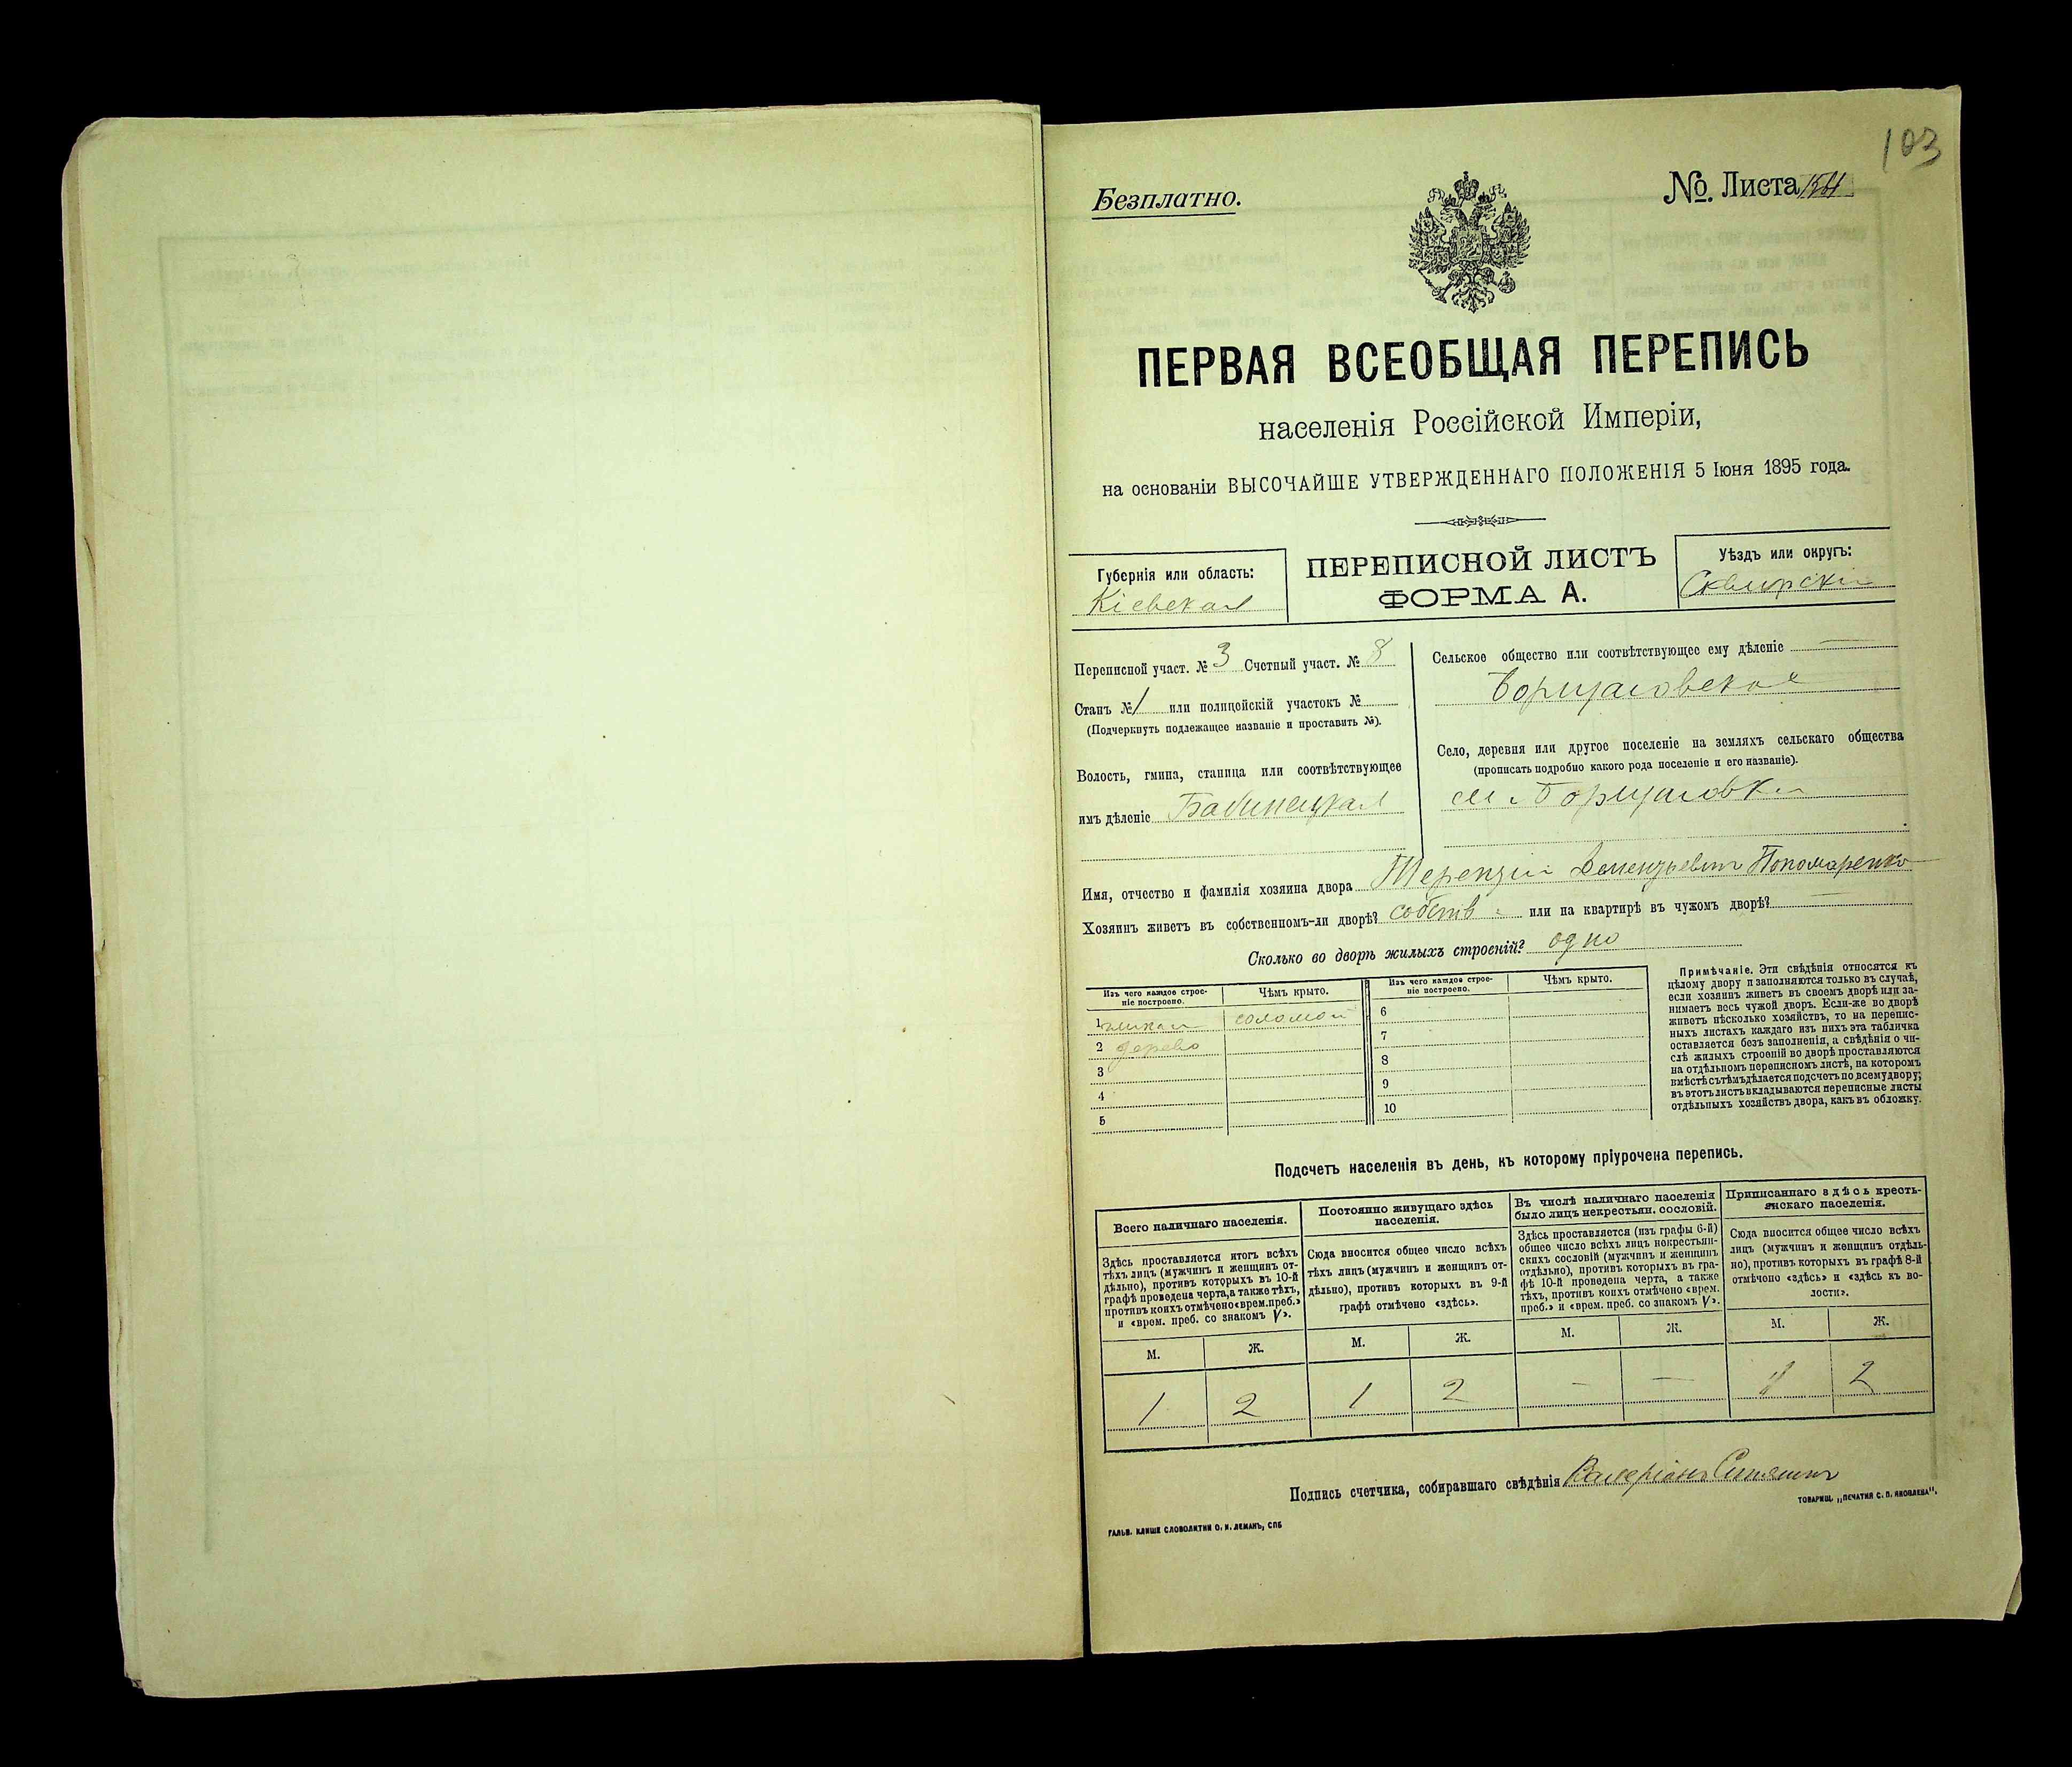 103
Безплатно.
№ Листа
ПЕРВАЯ ВСЕОБЩАЯ ПЕРЕПИСЬ
населенія Россійской Имперіи,
на основаніи ВЫСОЧАЙШЕ УТВЕРЖДЕННАГО ПОЛОЖЕНІЯ 5 Іюня 1895 года.
Губернія или область:
Кіевская
ПЕРЕПИСНОЙ ЛИСТЪ
ФОРМА А.
Уѣздъ или округъ:
Сквирскій
Переписной участ. № 3 Счетный участ. № 8
Станъ № 1 или полицейскій участокъ №
(Подчеркнуть подлежащее названіе и проставить №).
Волость, гмина, станица или соотвѣтствующее
имъ дѣленіе Бабинецкая
Сельское общество или соотвѣтствующее ему дѣленіе
Борщаговское
Село, деревня или другое поселеніе на земляхъ сельскаго общества
(прописать подробно какого рода поселеніе и его названіе).
Борщаговка
Имя, отчество и фамилія хозяина двора Терентій Дементьевичъ Пономаренко
Хозяинъ живетъ въ собственномъ-ли дворѣ? собств или на квартирѣ въ чужомъ дворѣ?
Сколько во дворѣ жилыхъ строеній? одно
Изъ чего каждое строе-
ніе построено.
Чѣмъ крыто.
Изъ чего каждое строе-
ніе построено.
Чѣмъ крыто.
1 соломой 6
2 дерево 7
3 8
4 9
5 10
Примѣчаніе. Эти свѣдѣнія относятся къ
цѣлому двору и заполняются только въ случаѣ,
если хозяинъ живетъ въ своемъ дворѣ или за-
нимаетъ весь чужой дворъ. Если-же во дворѣ
живетъ нѣсколько хозяйствъ, то на перепис-
ныхъ листахъ каждаго изъ нихъ эта табличка
оставляется безъ заполненія, а свѣдѣнія о чи-
слѣ жилыхъ строеній во дворѣ проставляются
на отдѣльномъ переписномъ листѣ, на которомъ
вмѣстѣ съ тѣмъ дѣлается подсчетъ по всему двору;
въ этотъ листъ вкладываются переписные листы
отдѣльныхъ хозяйствъ двора, какъ въ обложку.
Подсчетъ населенія въ день, къ которому пріурочена перепись.
Всего наличнаго населенія.
Здѣсь проставляется итогъ всѣхъ
тѣхъ лицъ (мужчинъ и женщинъ от-
дѣльно), противъ которыхъ въ 10-й
графѣ проведена черта, а также тѣхъ,
противъ коихъ отмѣчено «врем. преб.»
и «врем. преб. со знакомъ V».
Постоянно живущаго здѣсь
населенія.
Сюда вносится общее число всѣхъ
тѣхъ лицъ (мужчинъ и женщинъ от-
дѣльно), противъ которыхъ въ 9-й
графѣ отмѣчено «здѣсь».
Въ числѣ наличнаго населенія
было лицъ некрестьян. сословій.
Здѣсь проставляется (изъ графы 6-й)
общее число всѣхъ лицъ некрестьян-
скихъ сословій (мужчинъ и женщинъ
отдѣльно), противъ которыхъ въ гра-
фѣ 10-й проведена черта, а также
тѣхъ, противъ коихъ отмѣчено «врем.
преб.» и «врем. преб. со знакомъ V».
Приписаннаго здѣсь кресть-
янскаго населенія.
Сюда вносится общее число всѣхъ
лицъ (мужчинъ и женщинъ отдѣль-
но), противъ которыхъ въ графѣ 8-й
отмѣчено «здѣсь» и «здѣсь къ во-
лости».
М. Ж. М. Ж. М. Ж. М. Ж.
1 2 1 2 — — 1 2
Подпись счетчика, собиравшаго свѣдѣнія Валеріанъ
ТОВАРИЩ. „ПЕЧАТНЯ С. П. ЯКОВЛЕВА".
ГАЛЬВ. КЛИШЕ СЛОВОЛИТНИ О. И. ЛЕМАНЪ, СПБ